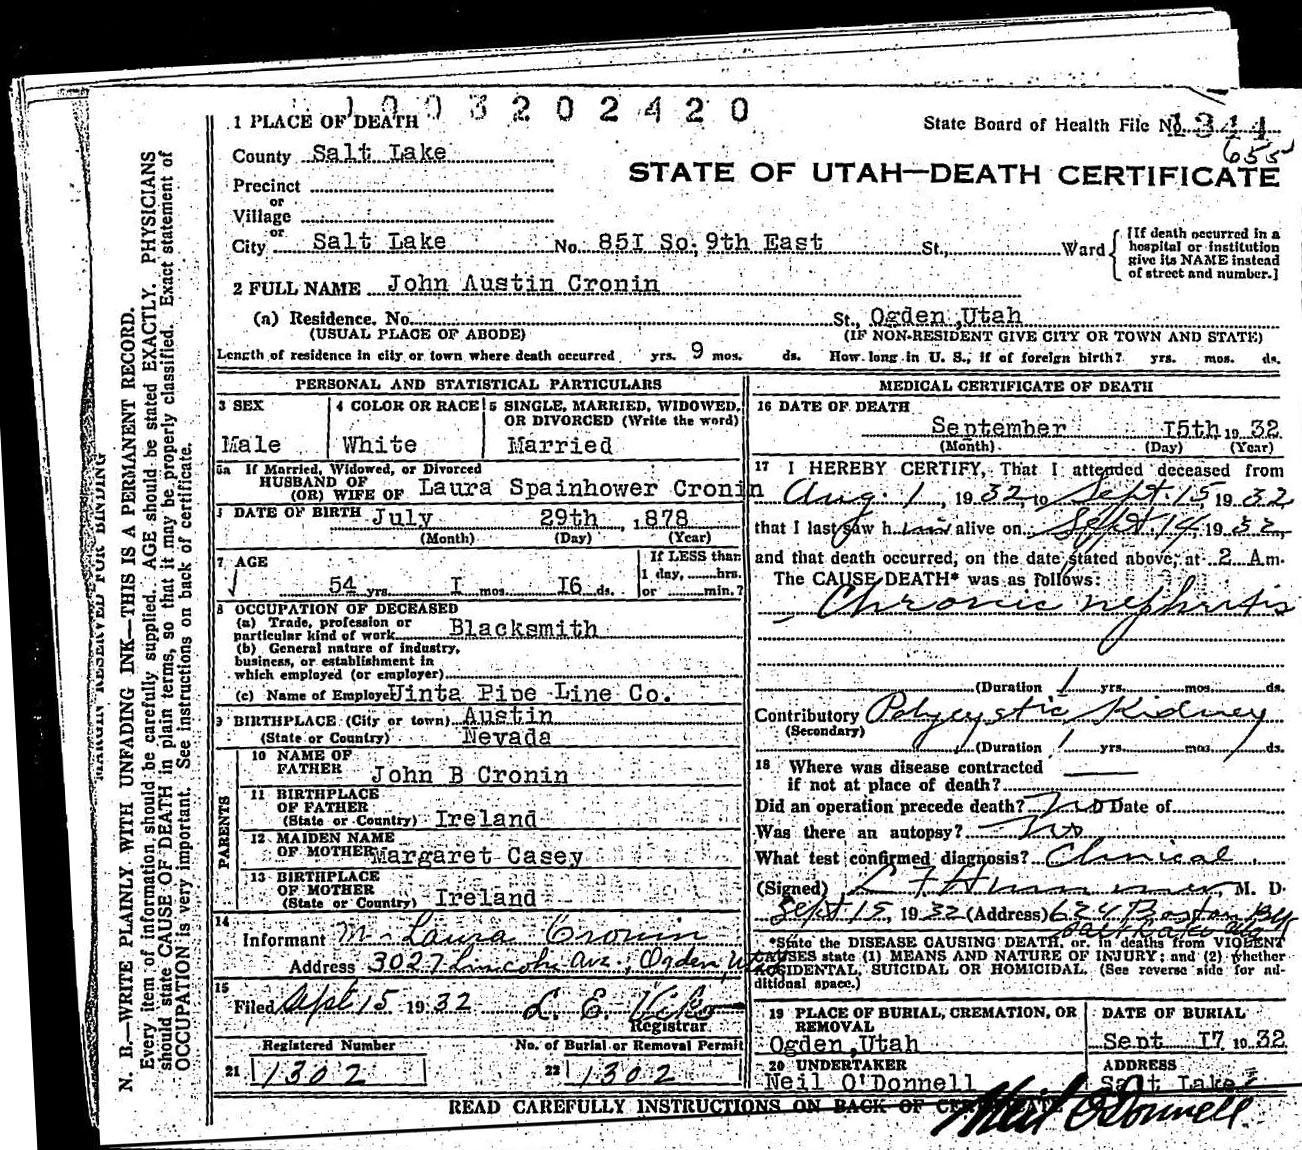 1003202420
1 PLACE OF DEATH
State Board of Health File No. 1344
655
County Salt Lake
STATE OF UTAH—DEATH CERTIFICATE
Precinct
or
Village
or
City Salt Lake No. 851 So. 9th East St., Ward
[If death occurred in a
hospital or institution
give its NAME instead
of street and number.]
2 FULL NAME John Austin Cronin
(a) Residence. No. St., Ogden, Utah
(USUAL PLACE OF ABODE) (IF NON-RESIDENT GIVE CITY OR TOWN AND STATE)
Length of residence in city or town where death occurred yrs. 9 mos. ds. How long in U. S., if of foreign birth? yrs. mos. ds.
PERSONAL AND STATISTICAL PARTICULARS
3 SEX
Male
4 COLOR OR RACE
White
5 SINGLE, MARRIED, WIDOWED,
OR DIVORCED (Write the word)
Married
5a If Married, Widowed, or Divorced
HUSBAND OF
(OR) WIFE OF Laura Spainhower Cronin
DATE OF BIRTH July 29th, 1878
(Month) (Day) (Year)
7 AGE
54 yrs. I mos. I6 ds.
If LESS than
1 day, hrs.
or min.?
8 OCCUPATION OF DECEASED
(a) Trade, profession or
particular kind of work Blacksmith
(b) General nature of industry,
business, or establishment in
which employed (or employer)
(c) Name of Employer Uinta Pipe Line Co.
9 BIRTHPLACE (City or town) Austin
(State or Country) Nevada
PARENTS
10 NAME OF
FATHER John B Cronin
11 BIRTHPLACE
OF FATHER
(State or Country) Ireland
12 MAIDEN NAME
OF MOTHER Margaret Casey
13 BIRTHPLACE
OF MOTHER
(State or Country) Ireland
14
Informant Laura Cronin
Address 3027 Lincoln Ave., Ogden, Ut
15
Filed Sept 15 1932 L. E.
Registrar
Registered Number
21 1302
No. of Burial or Removal Permit
22 1302
MEDICAL CERTIFICATE OF DEATH
16 DATE OF DEATH
September I5th 19 32
(Month) (Day) (Year)
17 I HEREBY CERTIFY, That I attended deceased from
Aug. 1, 1932 to Sept. 15, 1932
that I last saw him alive on Sept. 14, 1932,
and that death occurred, on the date stated above, at 2 A.m.
The CAUSE DEATH* was as follows:
Chronic nephritis
(Duration 1 yrs. mos. ds.
Contributory Polycystic Kidney
(Secondary)
(Duration 1 yrs. mos. ds.
18 Where was disease contracted
if not at place of death?
Did an operation precede death? No Date of
Was there an autopsy? No
What test confirmed diagnosis? Clinical
(Signed) M. D.
Sept 15, 1932 (Address) 624 Boston Bldg
Salt Lake City
*State the DISEASE CAUSING DEATH, or, in deaths from VIOLENT
CAUSES state (1) MEANS AND NATURE OF INJURY; and (2) whether
ACCIDENTAL, SUICIDAL OR HOMICIDAL. (See reverse side for ad-
ditional space.)
19 PLACE OF BURIAL, CREMATION, OR
REMOVAL
Ogden, Utah
DATE OF BURIAL
Sept I7 19 32
20 UNDERTAKER
Neil O'Donnell
ADDRESS
Salt Lake
READ CAREFULLY INSTRUCTIONS ON BACK OF CERTIFICATE
Neil O'Donnell
MARGIN RESERVED FOR BINDING
N. B.—WRITE PLAINLY WITH UNFADING INK—THIS IS A PERMANENT RECORD.
Every item of information should be carefully supplied. AGE should be stated EXACTLY. PHYSICIANS
should state CAUSE OF DEATH in plain terms, so that it may be properly classified. Exact statement of
OCCUPATION is very important. See instructions on back of certificate.